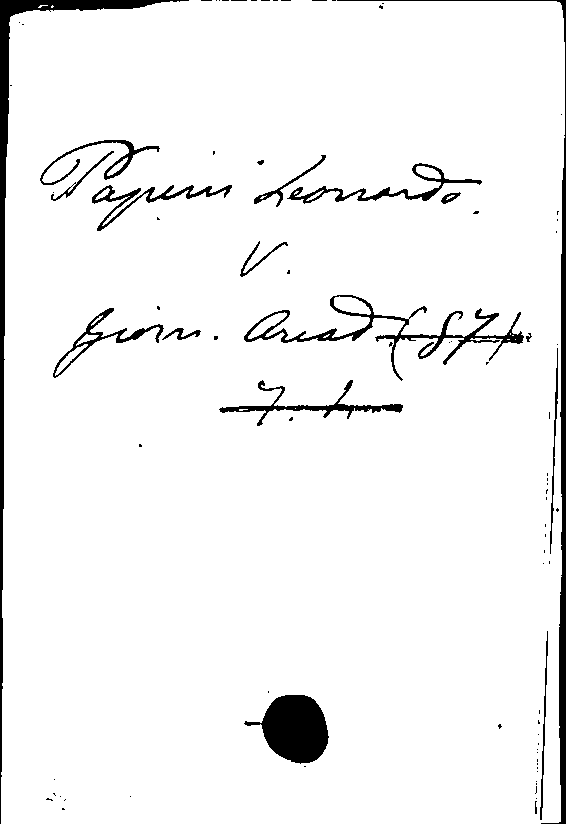 Papini Leonardo.
V.
Giorn. Arcad (87)
7. 1.